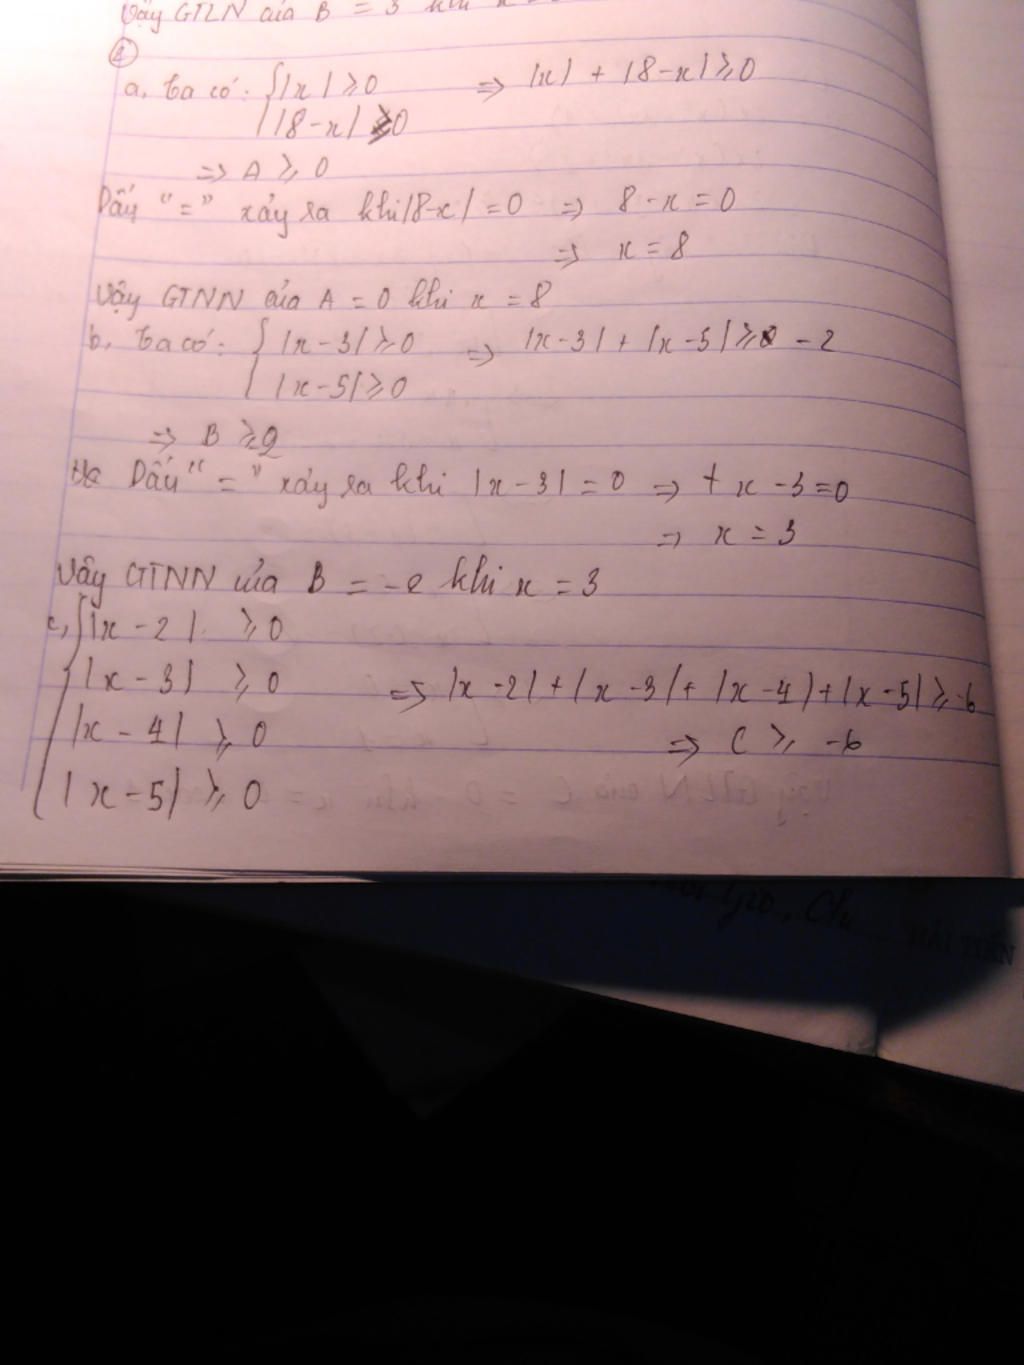 Vậy GTLN của B = 3 khi x
2
a, Ta có: { |x| ≥ 0 ⇒ |x| + |8-x| ≥ 0
|8-x| ≥ 0
⇒ A ≥ 0
Dấu "=" xảy ra khi |8-x| = 0 ⇒ 8-x = 0
⇒ x = 8
Vậy GTNN của A = 0 khi x = 8
b, Ta có: { |x-3| ≥ 0 ⇒ |x-3| + |x-5| ≥ -2
|x-5| ≥ 0
⇒ B ≥
Dấu "=" xảy ra khi |x-3| = 0 ⇒ x-3=0
⇒ x = 3
Vậy GTNN của B = -2 khi x = 3
c, { |x-2| ≥ 0
|x-3| ≥ 0 ⇒ |x-2| + |x-3| + |x-4| + |x-5| ≥ -6
|x-4| ≥ 0 ⇒ C ≥ -6
|x-5| ≥ 0